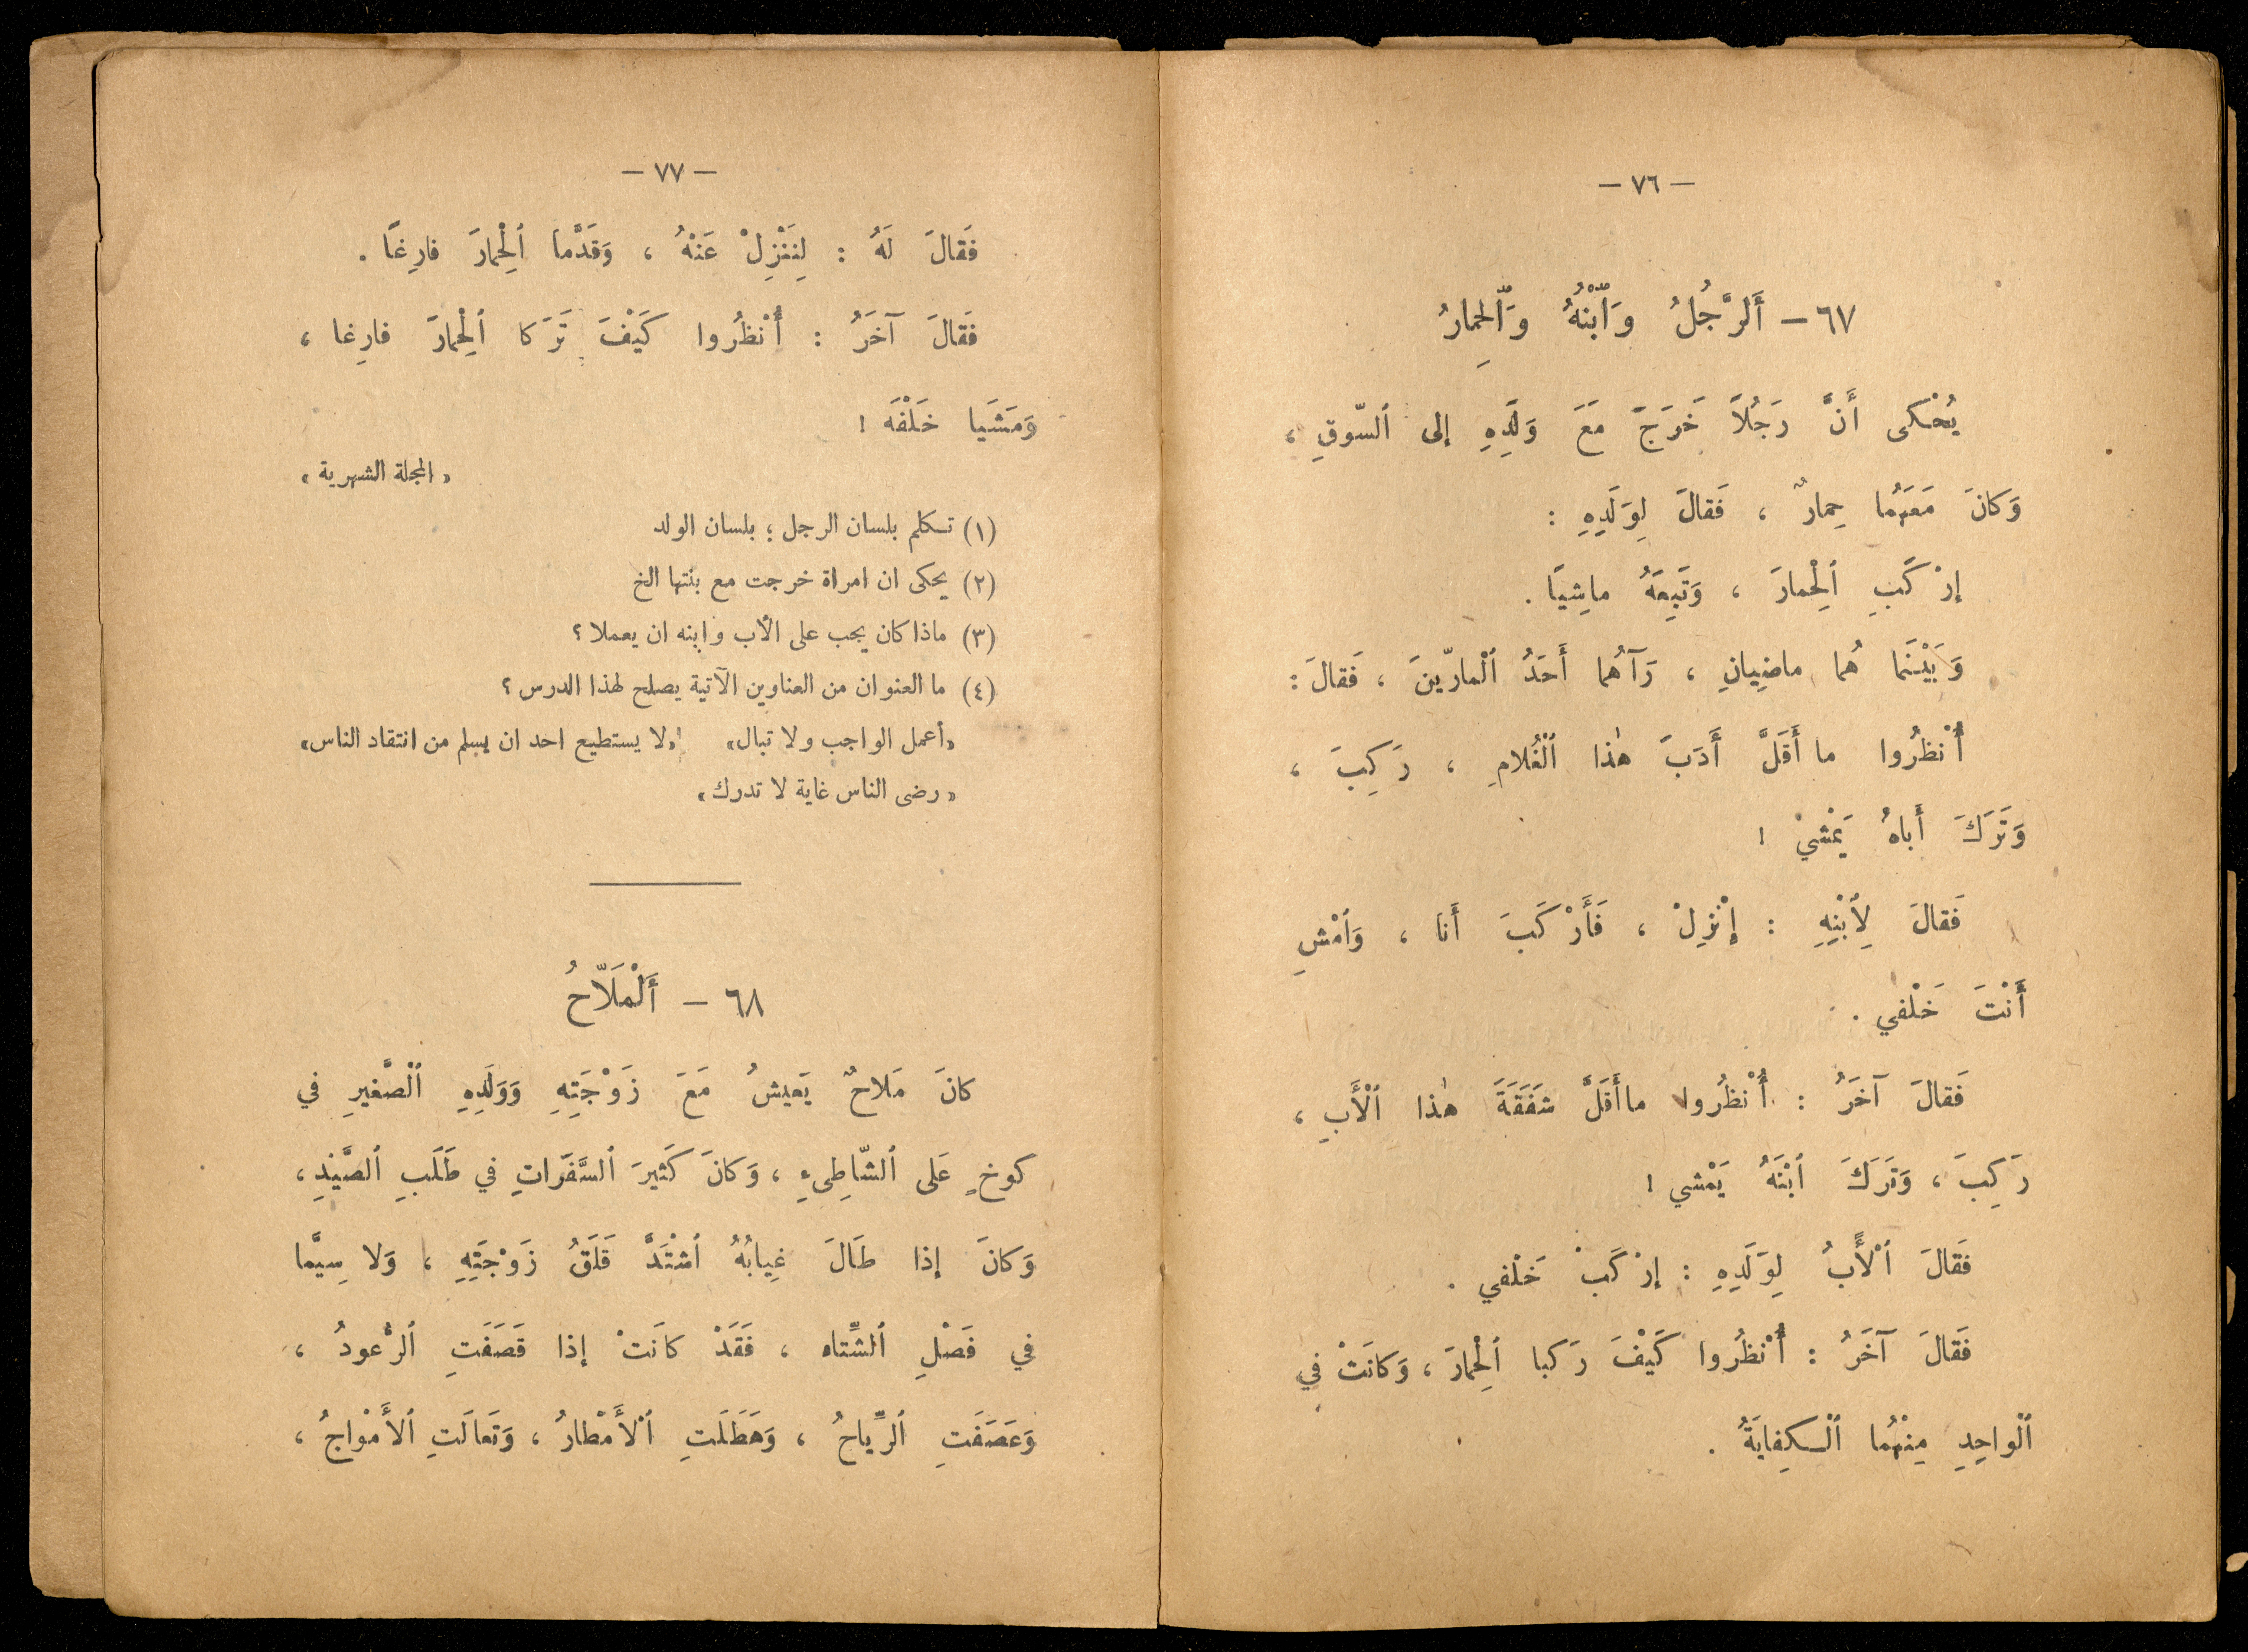 — ٧٦ —
٦٧ — أَلرَّجُلُ وَٱبْنُهُ وَٱلْحِمارُ
يُحْكى أَنَّ رَجُلاً خَرَجَ مَعَ وَلَدِهِ إلى ٱلسّوقِ ،
وَكانَ مَعَهُما حِمارٌ ، فَقالَ لِوَلَدِهِ :
إرْكَبِ ٱلْحِمارَ ، وَتَبِعَهُ ماشِيًا .
وَبَيْنَما هُما ماضِيانِ ، رَآهُما أَحَدُ ٱلْمارّينَ ، فَقالَ :
أُنْظُرُوا ما أَقَلَّ أَدَبَ هٰذا ٱلْغُلامِ ، رَكِبَ ،
وَتَرَكَ أَباهُ يَمْشيْ !
فَقالَ لِٱبْنِهِ : إنْزِلْ ، فَأَرْكَبَ أَنا ، وَٱمْشِ
أَنْتَ خَلْفي .
فَقالَ آخَرُ : أُنْظُروا ما أَقَلَّ شَفَقَةَ هٰذا ٱلْأَبِ ،
رَكِبَ ، وَتَرَكَ ٱبْنَهُ يَمْشي !
فَقالَ ٱلْأَبُ لِوَلَدِهِ : إرْكَبْ خَلْفي .
فَقالَ آخَرُ : أُنْظُروا كَيْفَ رَكبا ٱلْحِمارَ ، وَكانَتْ في
ٱلْواحِدِ مِنْهُما ٱلْكِفايَةُ .
— ٧٧ —
فَقالَ لَهُ : لِنَنْزِلْ عَنْهُ ، وَقَدَّما ٱلْحِمارَ فارِغًا .
فَقالَ آخَرُ : أُنْظُروا كَيْفَ تَرَكا ٱلْحِمارَ فارِغا ،
وَمَشَيا خَلْفَه !
« المجلة الشهرية »
(١) تكلم بلسان الرجل ؛ بلسان الولد
(٢) يحكى ان امراة خرجت مع بنتها الخ
(٣) ماذا كان يجب على الأب وابنه ان يعملا ؟
(٤) ما العنوان من العناوين الآتية يصلح لهذا الدرس ؟
«أعمل الواجب ولا تبال» «لا يستطيع احد ان يسلم من انتقاد الناس»
« رضى الناس غاية لا تدرك »
٦٨ — أَلْمَلاّحُ
كانَ مَلاحٌ يَعيشُ مَعَ زَوْجَتِهِ وَوَلَدِهِ ٱلْصَّغيرِ في
كوخٍ عَلى ٱلشّاطِىءِ ، وَكانَ كَثيرَ ٱلسَّفَراتِ في طَلَبِ ٱلصَّيْدِ ،
وَكانَ إذا طَالَ غِيابُهُ ٱشْتَدَّ قَلَقُ زَوْجَتِهِ ، وَلا سِيَّما
في فَصْلِ ٱلشِّتاه ، فَقَدْ كانَتْ إذا قَصَفَتِ ٱلرُّعودُ ،
وَعَصَفَتِ ٱلرِّياحُ ، وَهَطَلَتِ ٱلْأَمْطارُ ، وَتَعالَتِ ٱلأَمْواجُ ،